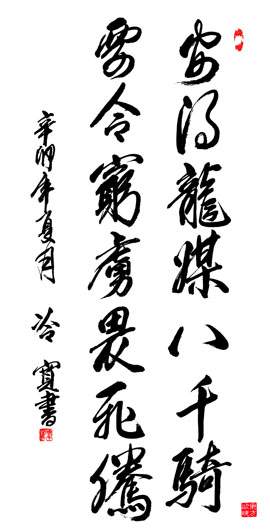 安得龍媒八千騎
要令窮虜畏飛騰
辛卯年夏月 冷寬書